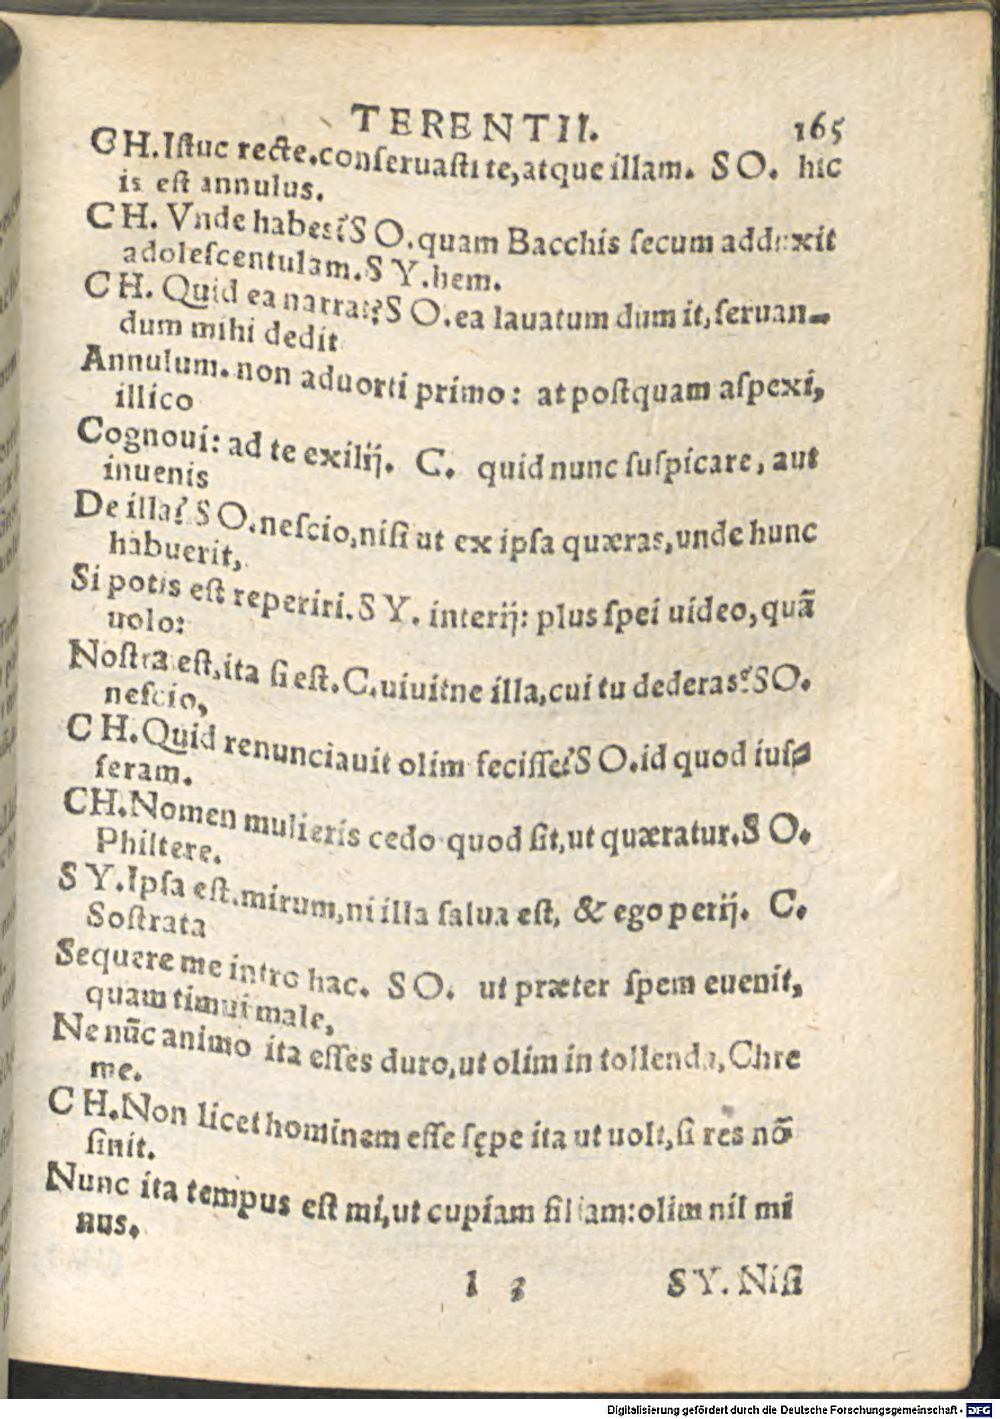 TERENTII. 165
CH. Iſtuc recte. conſeruaſti te, atque illam. SO. hic
is eſt annulus.
CH. Vnde habes? SO. quam Bacchis ſecum adduxit
adoleſcentulam. SY. hem.
CH. Quid ea narrat? SO. ea lauatum dum it, ſeruan-
dum mihi dedit
Annulum. non aduorti primo: at poſtquam aſpexi,
illico
Cognoui: ad te exilij. C. quid nunc ſuſpicare, aut
inuenis
De illa? SO. neſcio, niſi ut ex ipſa quæras, unde hunc
habuerit,
Si potis eſt reperiri. SY. interij: plus ſpei uideo, quã
uolo:
Noſtra eſt, ita ſi eſt. C. uiuitne illa, cui tu dederas? SO.
neſcio,
CH. Quid renunciauit olim feciſſe? SO. id quod iuſ-
ſeram.
CH. Nomen mulieris cedo quod ſit, ut quæratur. SO.
Philtere.
SY. Ipſa eſt. mirum, ni illa ſalua eſt, & ego perij. C.
Soſtrata
Sequere me intro hac. SO. ut præter ſpem euenit,
quam timui male,
Ne nũc animo ita eſſes duro, ut olim in tollenda, Chre
me.
CH. Non licet hominem eſſe ſępe ita ut uolt, ſi res nõ
ſinit.
Nunc ita tempus eſt mi, ut cupiam filiam: olim nil mi
nus.
l 3 SY. Niſi
Digitalisierung gefördert durch die Deutsche Forschungsgemeinschaft - DFG